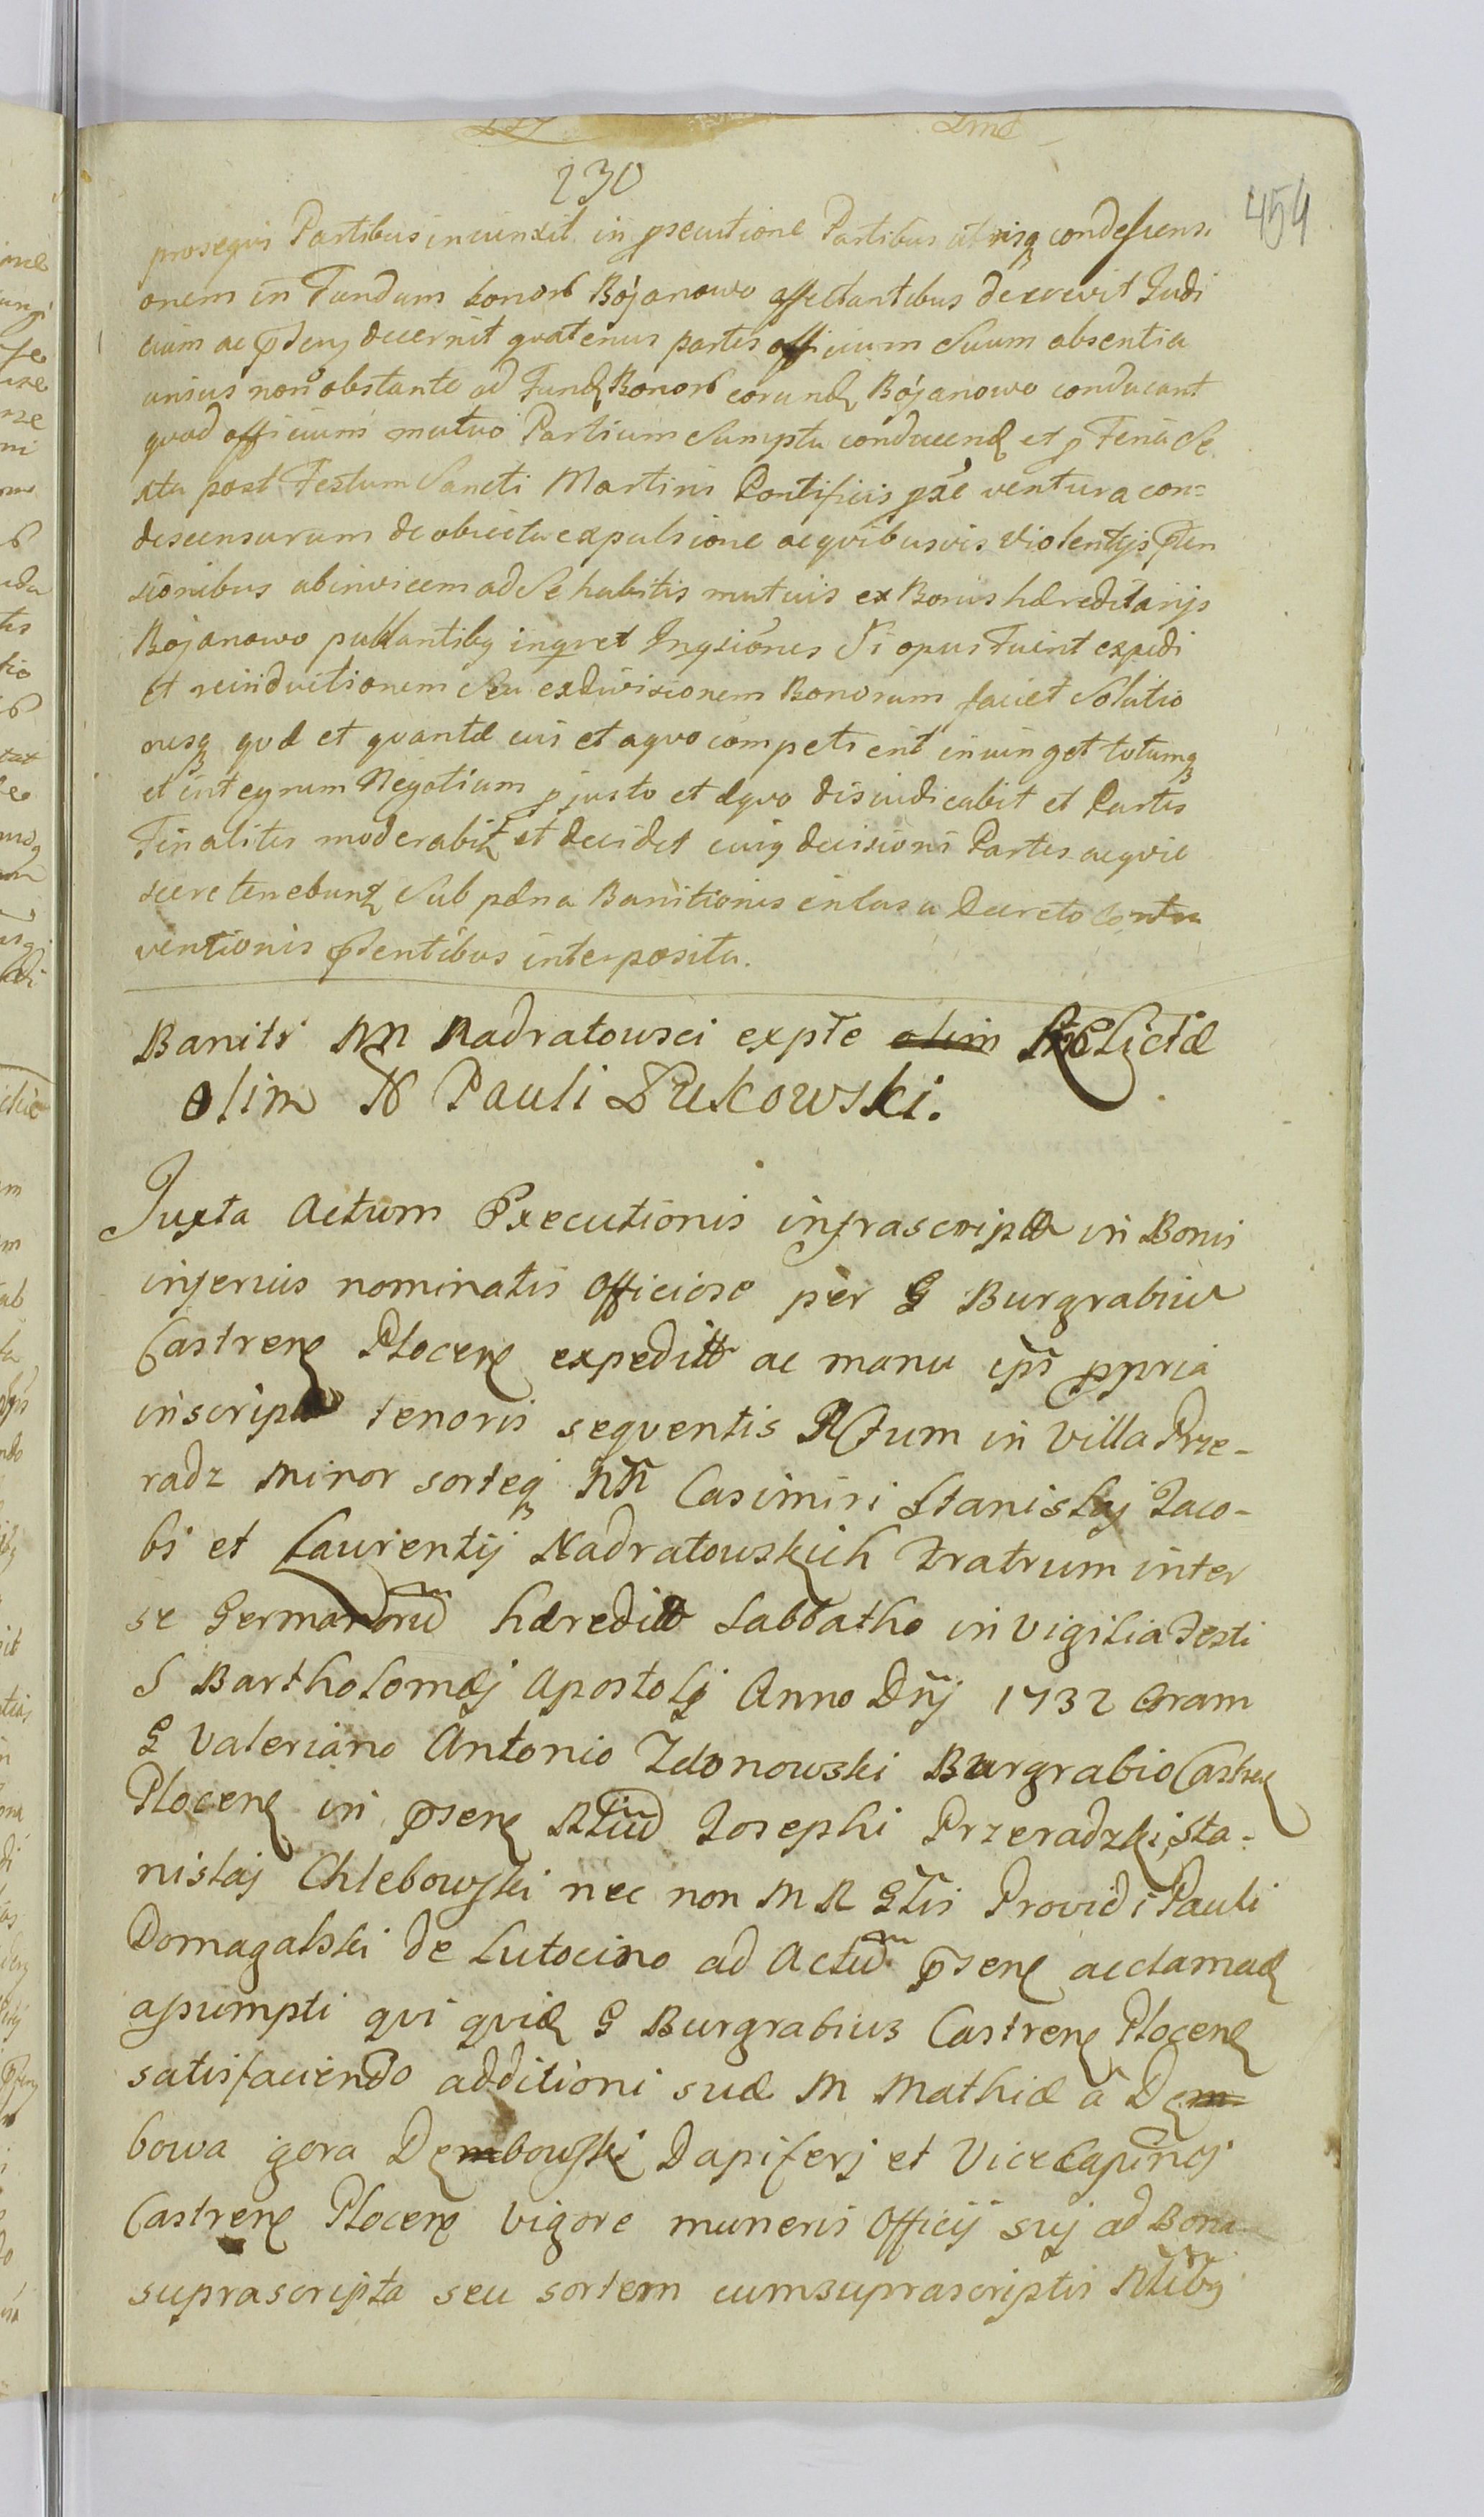 230
454
prosequi Partibus iniunxit in psecutione Partibus utrisq condescensi
onem in Fundum bonor Bojanowo affectantibus decrevit Judi
cium ac pns decernit quatenus partes officium Suum absentia
unius non obstante ad Fund Bonor eorund Bojanowo conducant
quod officium mutuo Partium Sumptu conducend et p Feria Se
xta post Festum Sancti Martini Pontificis pxe ventura con=
descensurum de obiecta expulsione ac quibusvis violentijs pten
sionibus abinvicem ad Se habitis mutuis ex Bonis hæreditarijs
Bojanowo inqret Inqsiones Si opus Fuerit expedi
et reinductionem Seu exdivisionem Bonorum faciet Solutio
nesq quæ et quantæ cui et a quo competierit iniunget totumq
et integrum Negotium p justo et æquo disiudicabit et Partes
Finaliter moderabit et decidet cuiq decisioni Partes acquie
scere tenebunt Sub pæna Banitionis in casu Decreto Contra
ventionis pntibus interposita.
Baniti NN Nadratowsci expte olim Relictæ
olim N Pauli Łukowski.
Juxta Actum Executionis infrascripta in Bonis
inferius nominatis Officiose per G Burgrabiu
Castren Plocen expedit ac manu ips ppria
inscript tenoris sequentis Actum in Villa Prze-
radz Minor sorteq NN Casimiri Stanislaj Jaco-
bi et Laurentij Nadratowskich Fratrum inter
se Germanoru hæredit Sabbatho in Vigilia Festi
S Bartholomæj Apostoli Anno Dnj 1732 Coram
G Valeriano Antonio Zdonowski Burgrabio Castren
Plocen in psen Nliu Josephi Przeradzki, Sta-
nislaj Chlebowski nec non M R Gtlis Providi Pauli
Domagalski de Lutocino ad Actu psen acclamad
assumpti qui quid G Burgrabius Castren Plocen
satisfaciendo additioni suæ M Mathiæ a Dem-
bowa gora Dembowski Dapiferj et Vice Capinej
Castren Plocen vigore muneris Officij suj ad Bona
suprascripta seu sortem cum suprascriptis Nlibq